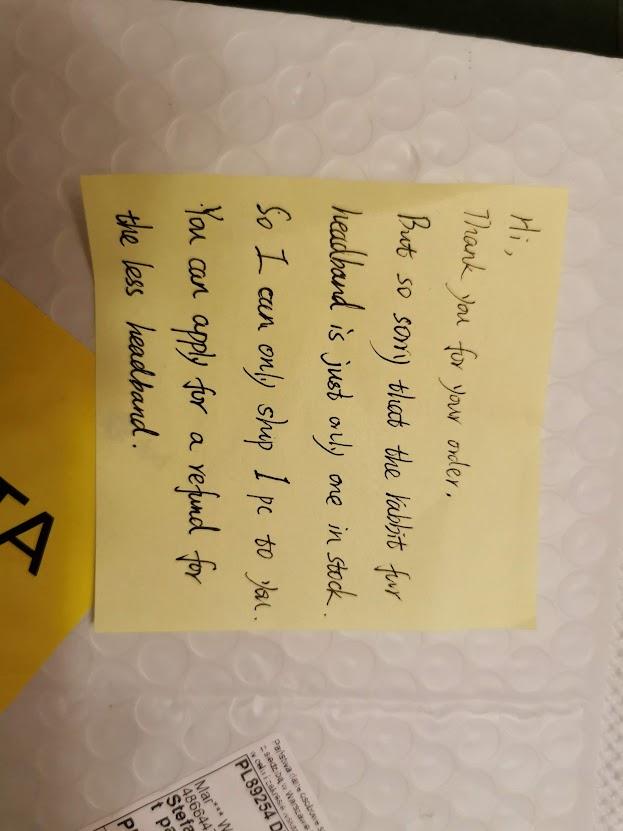 Hi,
Thank you for your order.
But so sorry that the rabbit fur
headband is just only one in stock.
So I can only ship 1 pc to you.
You can apply for a refund for
the less headband.
TA
PL89254 D
Mar*** W
486644
Stefa
t pa